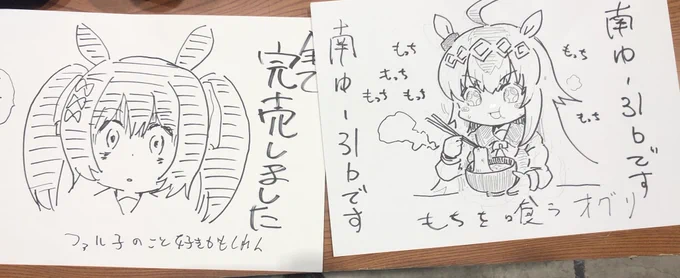 全て
完売しました
ファル子のこと好きかもしれん
南ゆ-31bです
南ゆ-31bです
もっち
もっち
もっち
もっち
もっち
もっち
もちを喰うオグリ